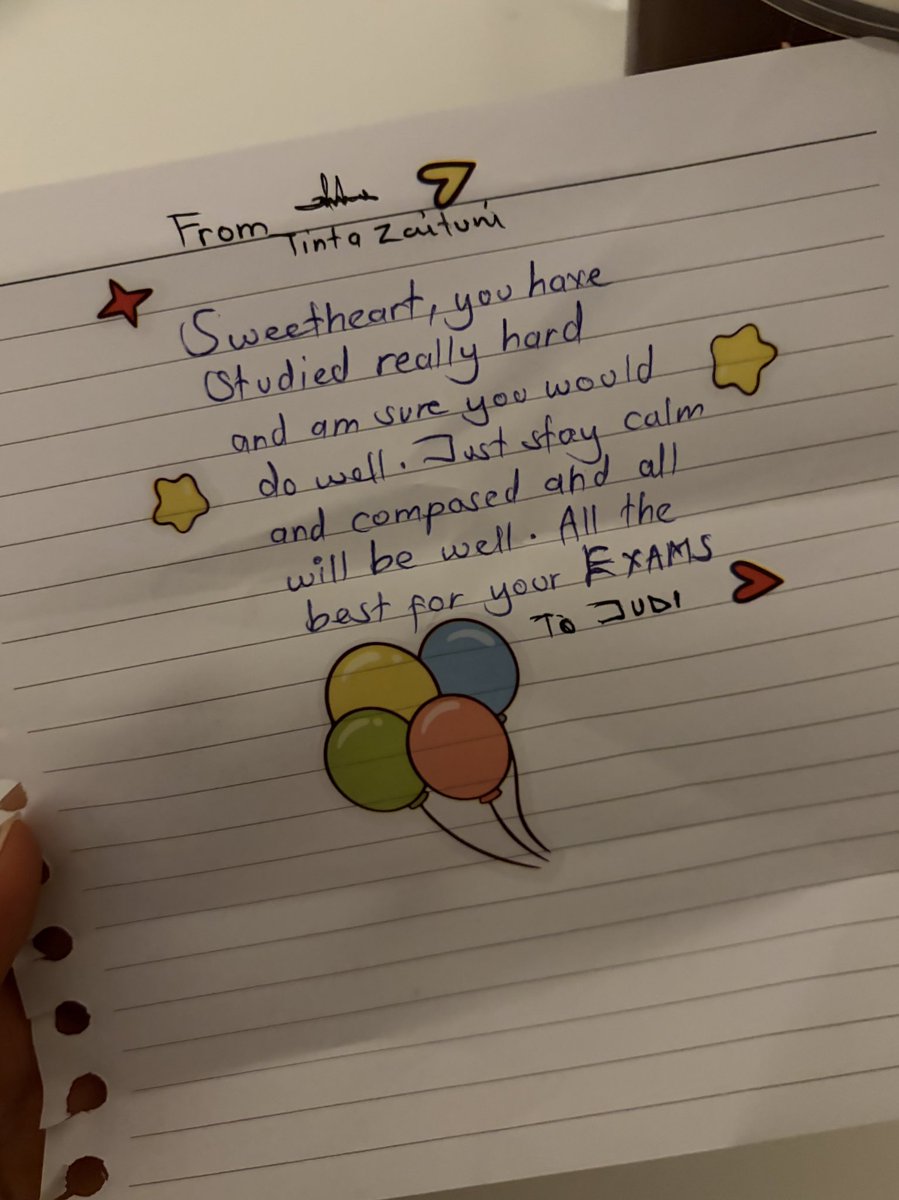 From
Tinta Zaituni
Sweetheart, you have
Studied really hard
and am sure you would
do well. Just stay calm
and composed and all
will be well. All the
best for your EXAMS
To JUDI